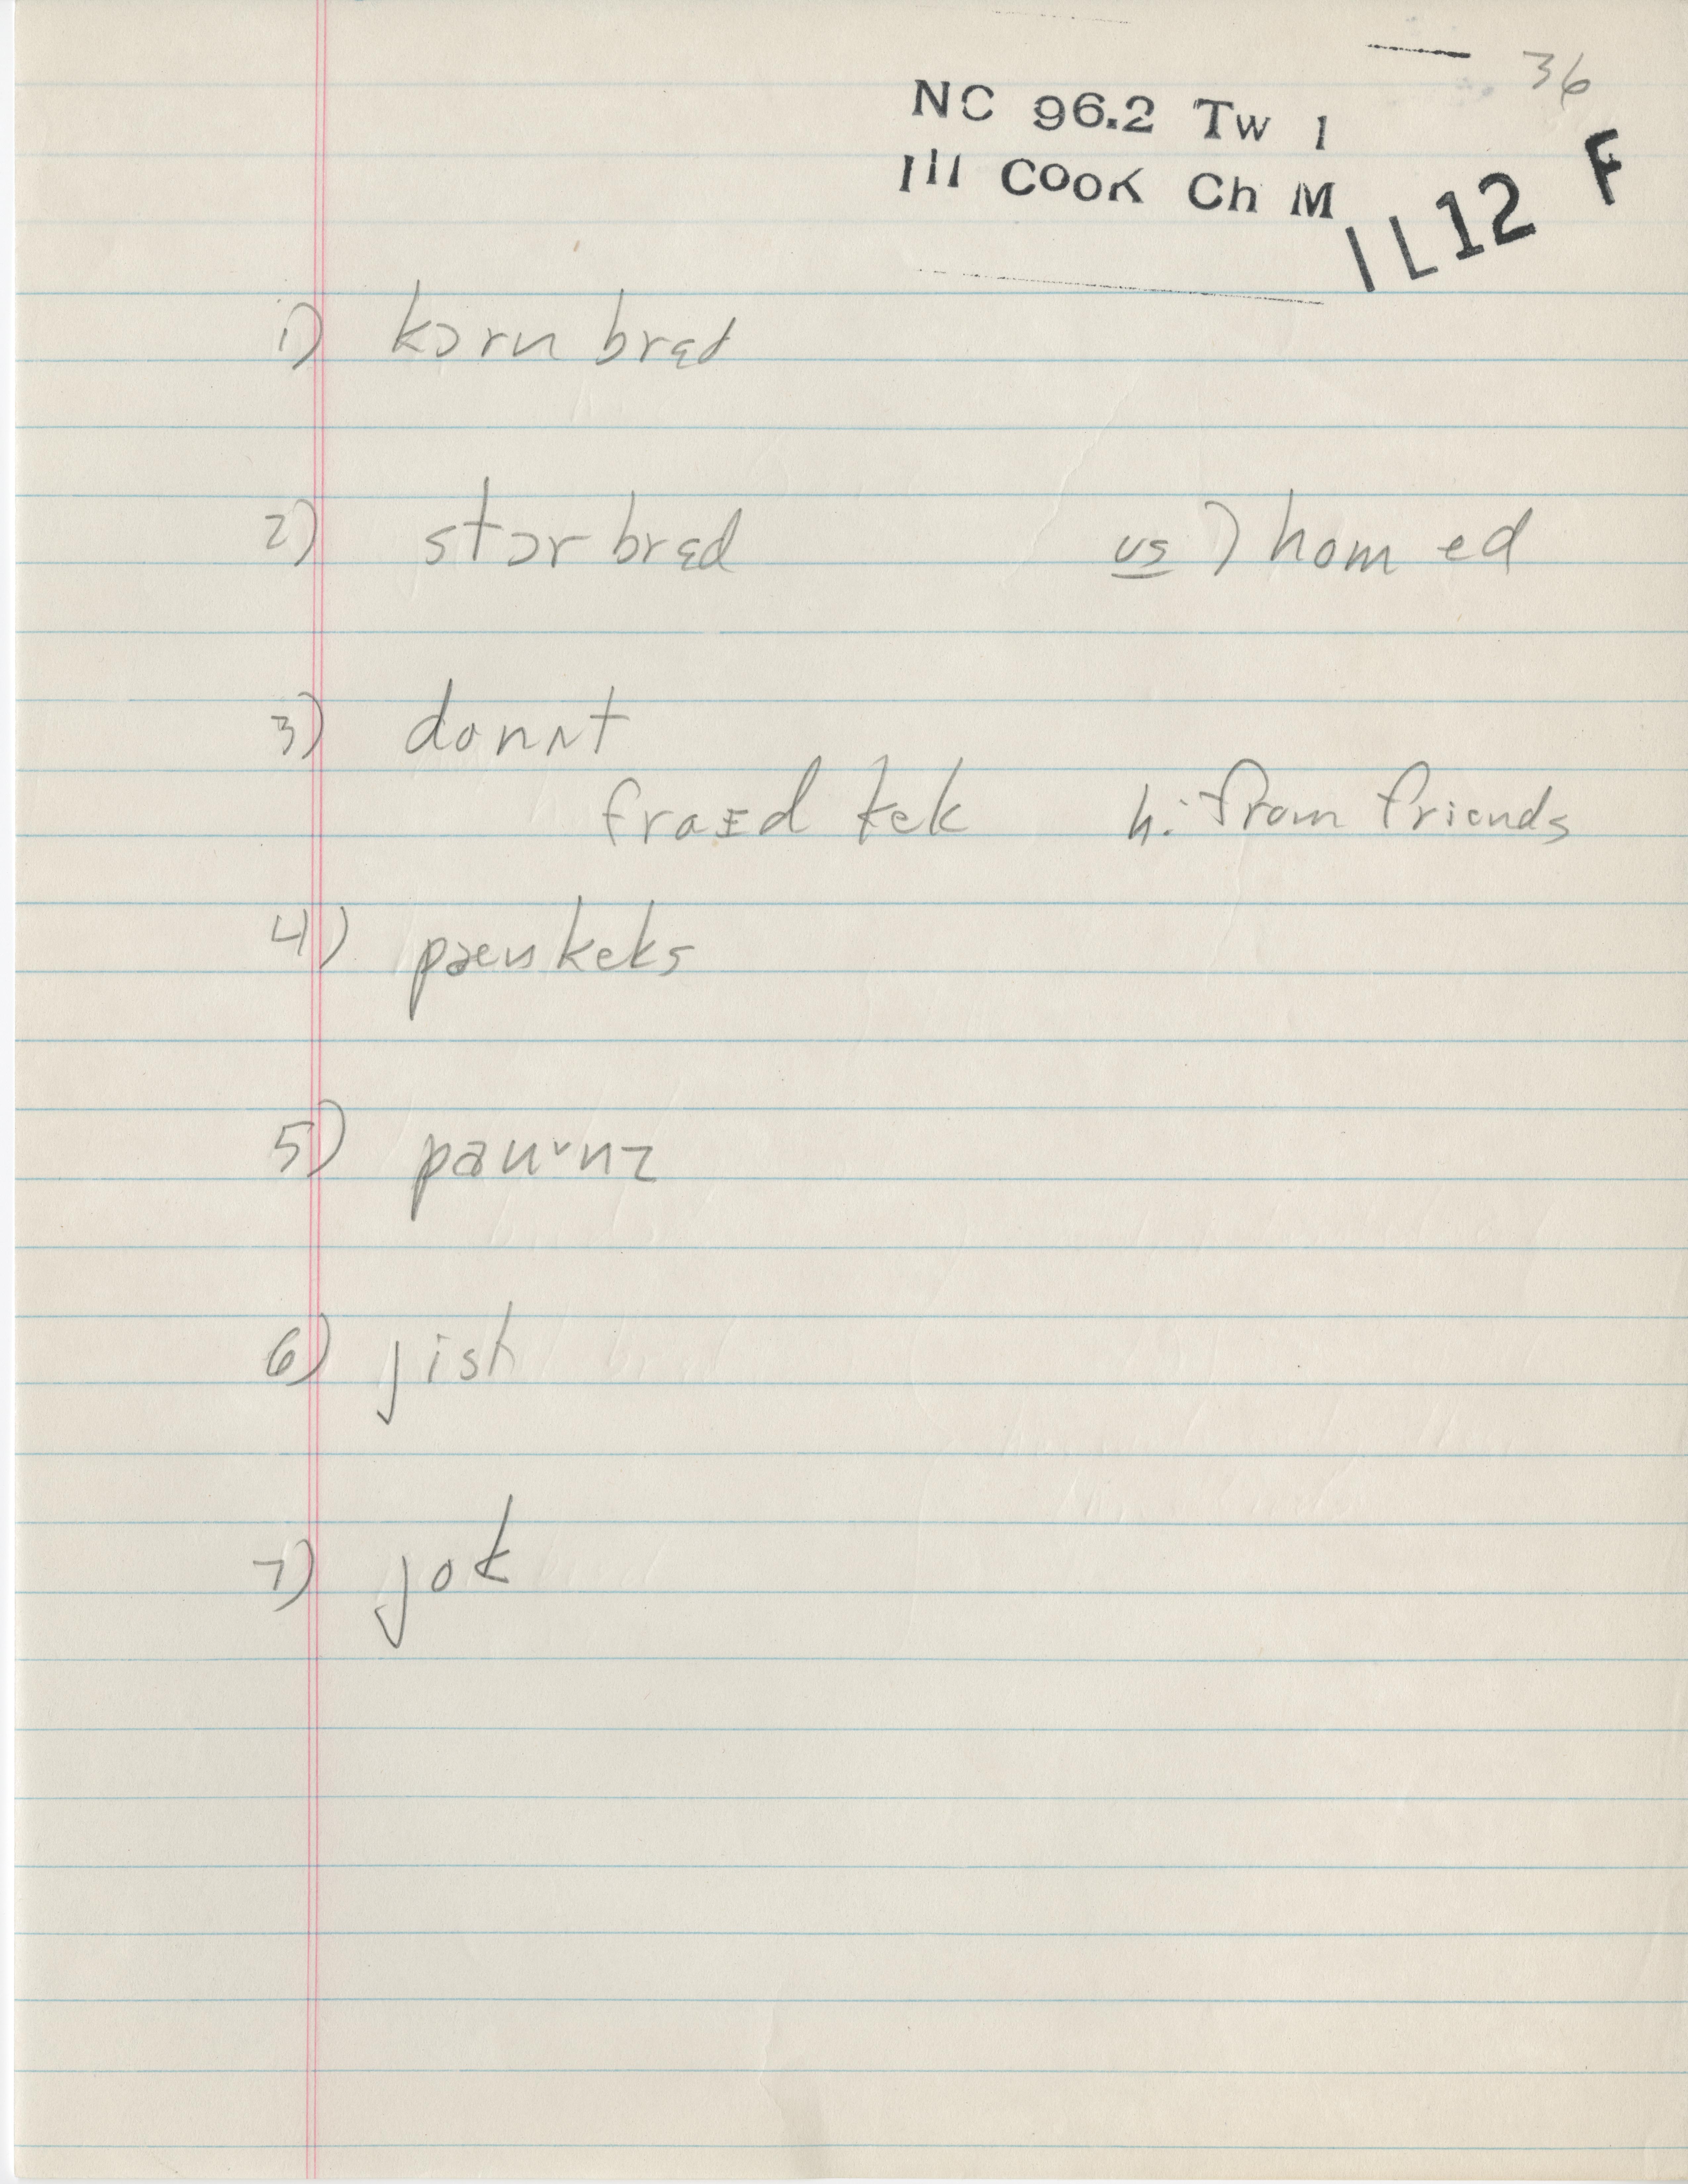 36
NC 96.2 Tw 1
Ill Cook Ch M
IL12 F
1) kɔrn brɛd
2) stɔr brɛd us ) hom ed
3) donʌt
fraɪd kek h. from friends
4) pæn keks
5) paunz
6) jist
7) jok